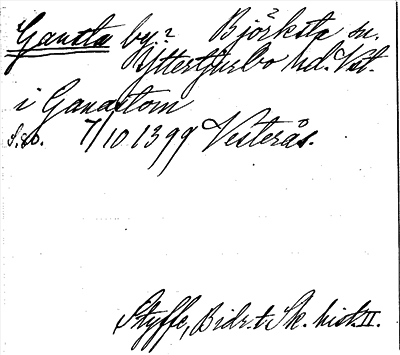 Gansta by? Björksta sn.
Yttertjurbo hd. Vst.
i Ganastom
S.do. 7/10 1399 Vesterås.
Styffe, Bidr. t. Sk. hist. II.